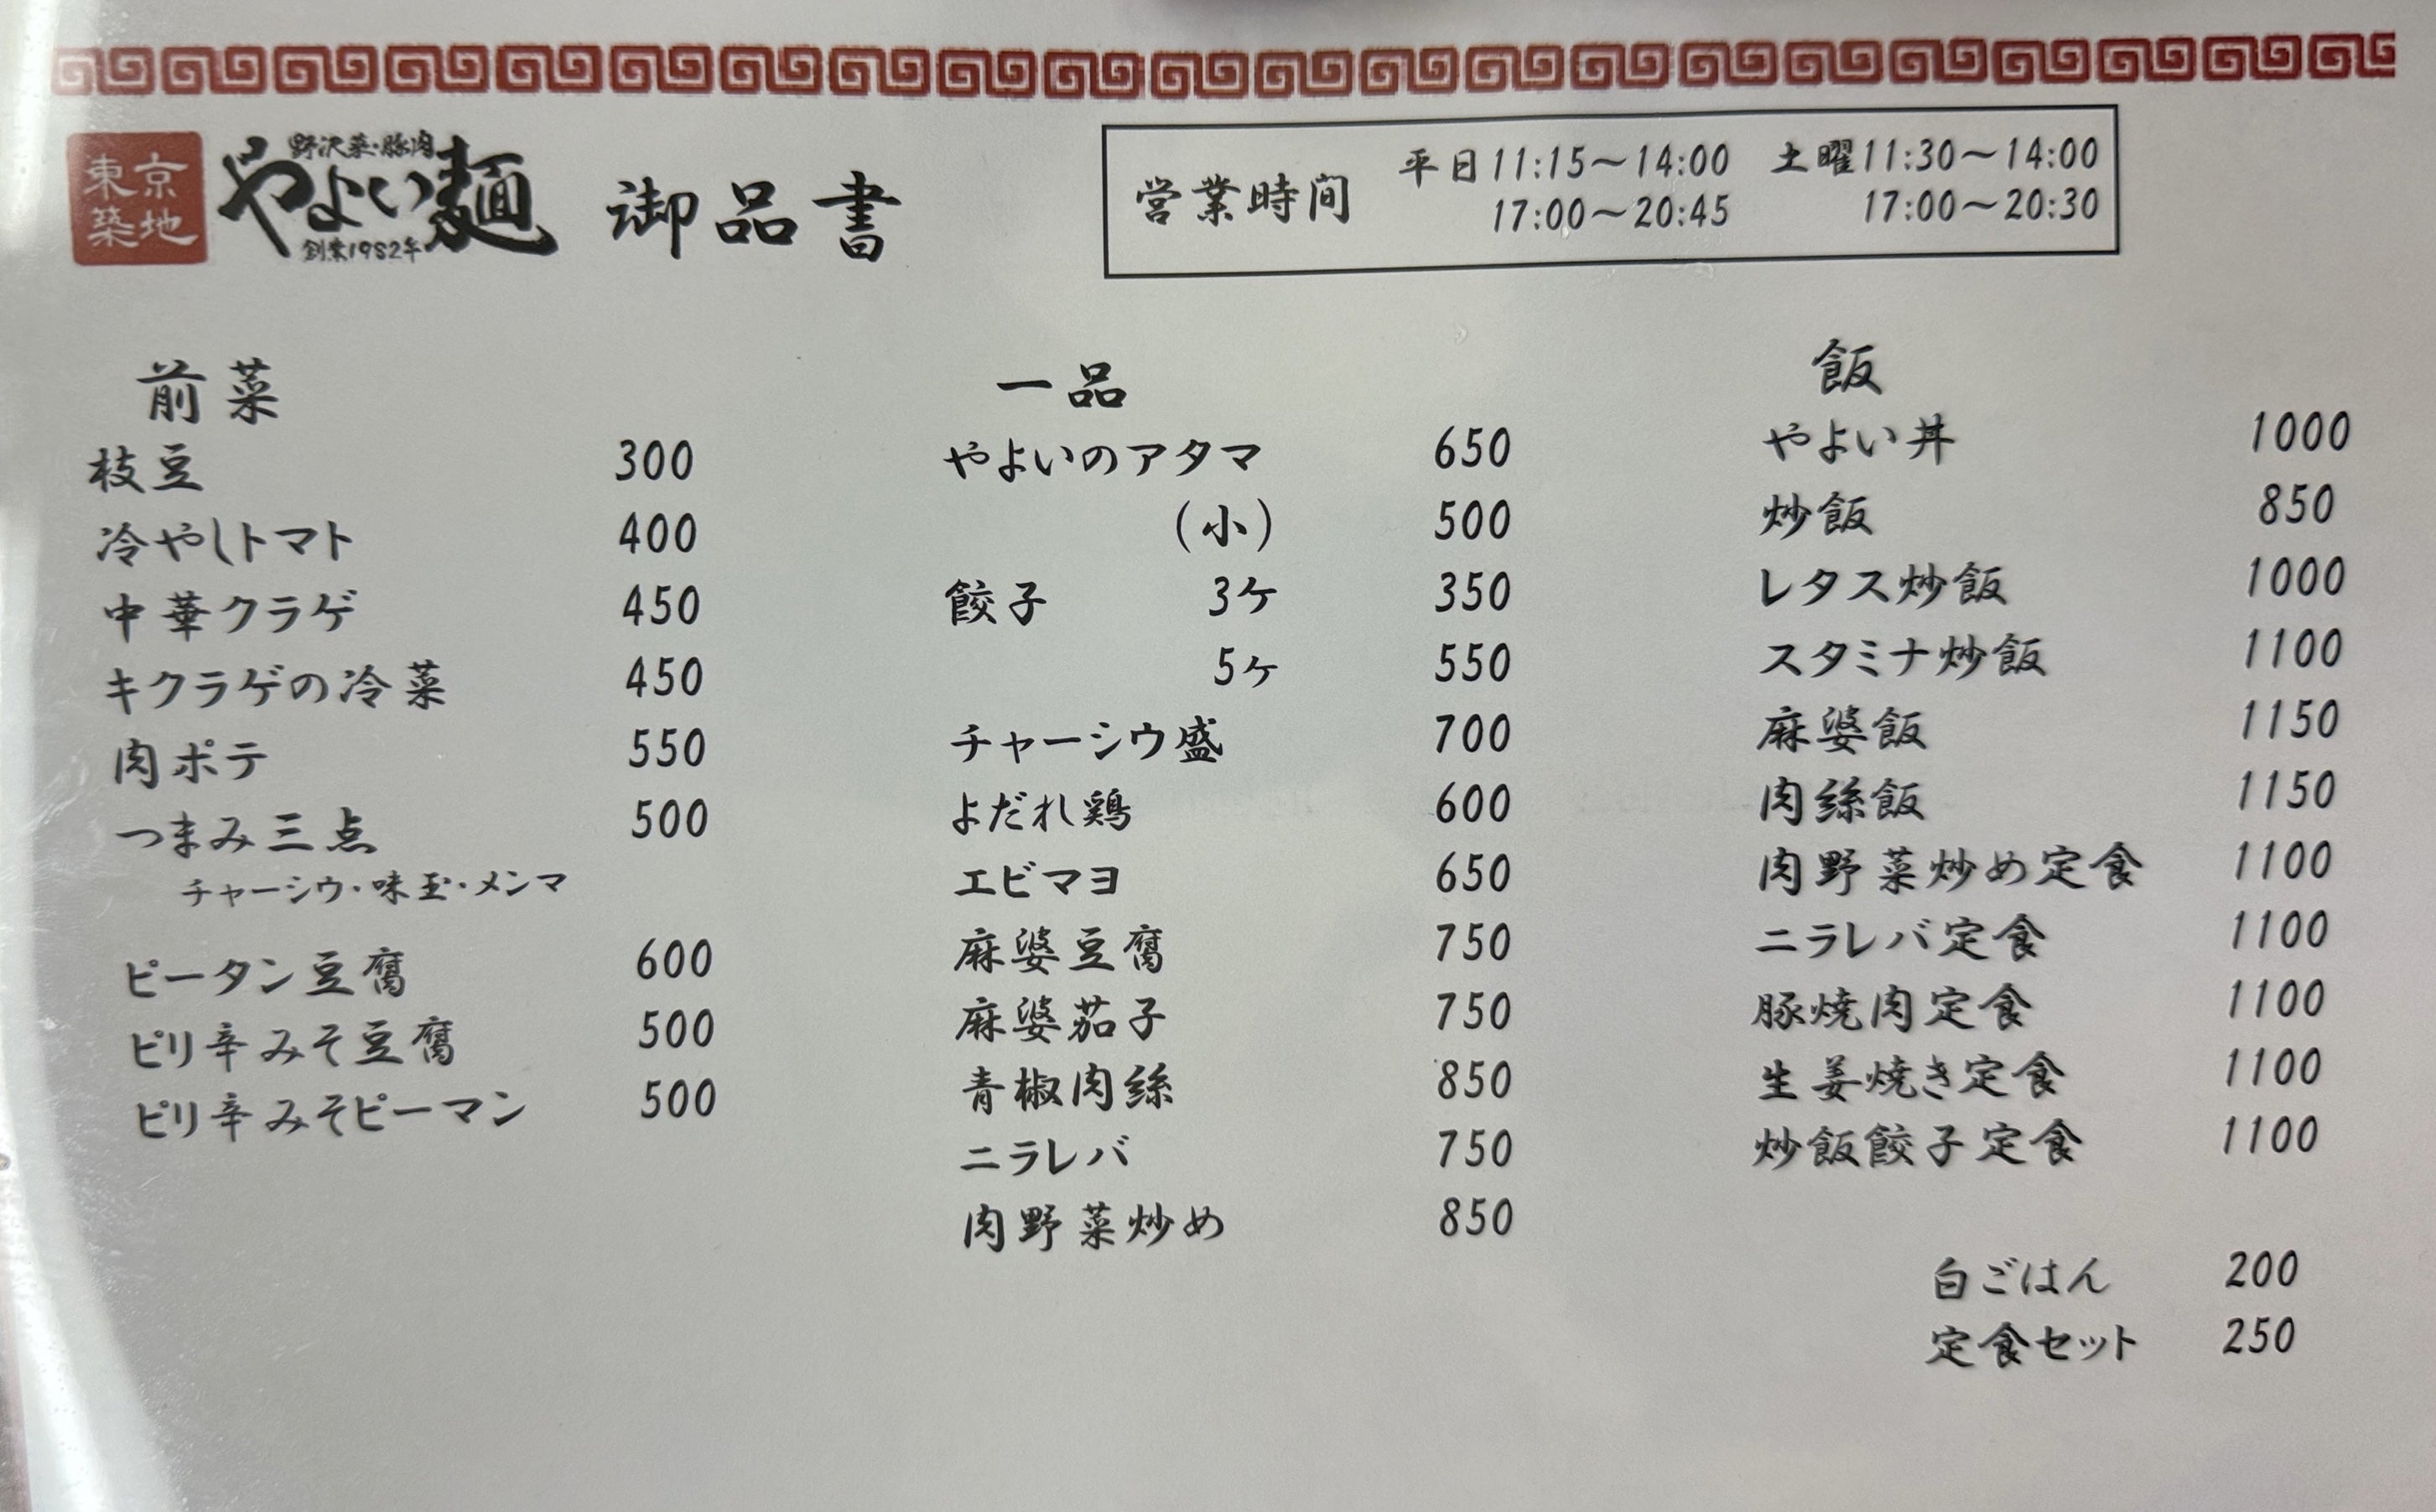 東京
築地
野沢菜・豚肉
やよい麺
創業1982年
御品書
営業時間
平日11:15～14:00 土曜11:30～14:00
17:00～20:45 17:00～20:30
前菜
枝豆 300
冷やしトマト 400
中華クラゲ 450
キクラゲの冷菜 450
肉ポテ 550
つまみ三点 500
チャーシウ・味玉・メンマ
ピータン豆腐 600
ピリ辛みそ豆腐 500
ピリ辛みそピーマン 500
一品
やよいのアタマ 650
(小) 500
餃子 3ケ 350
5ケ 550
チャーシウ盛 700
よだれ鶏 600
エビマヨ 650
麻婆豆腐 750
麻婆茄子 750
青椒肉絲 850
ニラレバ 750
肉野菜炒め 850
飯
やよい丼 1000
炒飯 850
レタス炒飯 1000
スタミナ炒飯 1100
麻婆飯 1150
肉絲飯 1150
肉野菜炒め定食 1100
ニラレバ定食 1100
豚焼肉定食 1100
生姜焼き定食 1100
炒飯餃子定食 1100
白ごはん 200
定食セット 250